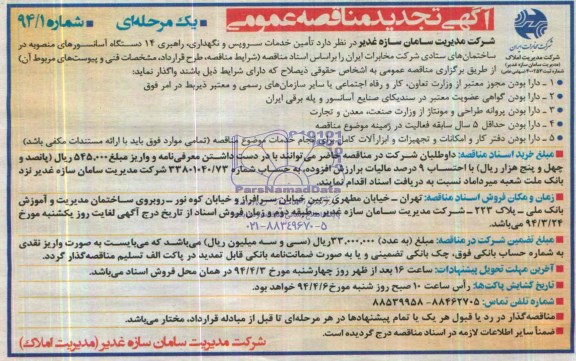 آگهی تجدید مناقصه عمومی - یک مرحله‌ای - شماره ۹۴/۱
شرکت مخابرات ایران
شرکت مدیریت املاک
(مدیریت سامان سازه غدیر)
شرکت مدیریت سامان سازه غدیر در نظر دارد تأمین خدمات سرویس و نگهداری، راهبری ۱۴ دستگاه آسانسورهای منصوبه در
ساختمان‌های ستادی شرکت مخابرات ایران را براساس اسناد مناقصه (شرایط مناقصه، طرح قرارداد، مشخصات فنی و پیوست‌های مربوط آن)
از طریق برگزاری مناقصه عمومی به اشخاص حقوقی ذیصلاح که دارای شرایط ذیل باشند واگذار نماید:
۱ـ دارا بودن مجوز معتبر از وزارت تعاون، کار و رفاه اجتماعی یا سایر سازمان‌های رسمی و معتبر ذیربط در امر فوق
۲ـ دارا بودن گواهی عضویت معتبر در سندیکای صنایع آسانسور و پله برقی ایران
۳ـ دارا بودن پروانه طراحی و مونتاژ از وزارت صنعت، معدن و تجارت
۴ـ دارا بودن حداقل ۵ سال سابقه فعالیت در زمینه موضوع مناقصه
۵ـ دارا بودن دفتر کار و امکانات و تجهیزات و ابزارآلات کامل برای انجام خدمات موضوع مناقصه (تمامی موارد فوق باید با ارائه مستندات مکفی باشد)
■ مبلغ خرید اسناد مناقصه: داوطلبان شرکت در مناقصه حاضر می‌توانند با در دست داشتن معرفی‌نامه و واریز مبلغ ۵۴۵,۰۰۰ ریال (پانصد و
چهل و پنج هزار ریال) با احتساب ۹ درصد مالیات بر ارزش افزوده، به حساب شماره ۳۳۸۰۱۰۴۰/۷۳ شرکت مدیریت سامان سازه غدیر نزد
بانک ملت شعبه میرداماد نسبت به دریافت اسناد اقدام نمایند.
■ زمان و مکان فروش اسناد مناقصه: تهران ـ خیابان مطهری ـ بین خیابان سرافراز و خیابان کوه نور ـ روبروی ساختمان مدیریت و آموزش
بانک ملی ـ پلاک ۲۲۳ ـ شرکت مدیریت سامان سازه غدیر ـ طبقه دوم و زمان فروش اسناد از تاریخ درج آگهی لغایت روز یکشنبه مورخ
۹۴/۳/۲۴ می‌باشد.
■ مبلغ تضمین شرکت در مناقصه: مبلغ (به عدد) ۳۳,۰۰۰,۰۰۰ ریال (سی و سه میلیون ریال) می‌باشد که می‌بایست به صورت واریز نقدی
به شماره حساب بانکی فوق، چک بانکی تضمینی و یا به صورت ضمانت‌نامه بانکی قابل تمدید در پاکت الف تسلیم مناقصه‌گذار گردد.
■ آخرین مهلت تحویل پیشنهادات: ساعت ۱۶ بعد از ظهر روز چهارشنبه مورخ ۹۴/۴/۳ در همان محل فروش اسناد می‌باشد.
■ تاریخ گشایش پاکت‌ها: رأس ساعت ۱۰ صبح روز شنبه مورخ ۹۴/۴/۶ خواهد بود.
■ شماره تلفن تماس: ۸۸۴۶۲۷۰۵ - ۸۸۵۳۹۹۵۸
■ مناقصه‌گذار در رد یا قبول هر یک یا تمام پیشنهادها در هر مرحله‌ای تا قبل از مبادله قرارداد، مختار می‌باشد.
■ ضمناً سایر اطلاعات لازمه در اسناد مناقصه درج گردیده است.
شرکت مدیریت سامان سازه غدیر (مدیریت املاک)
ParsNamadData
۰۲۱-۸۸۳۴۹۶۷۰-۵